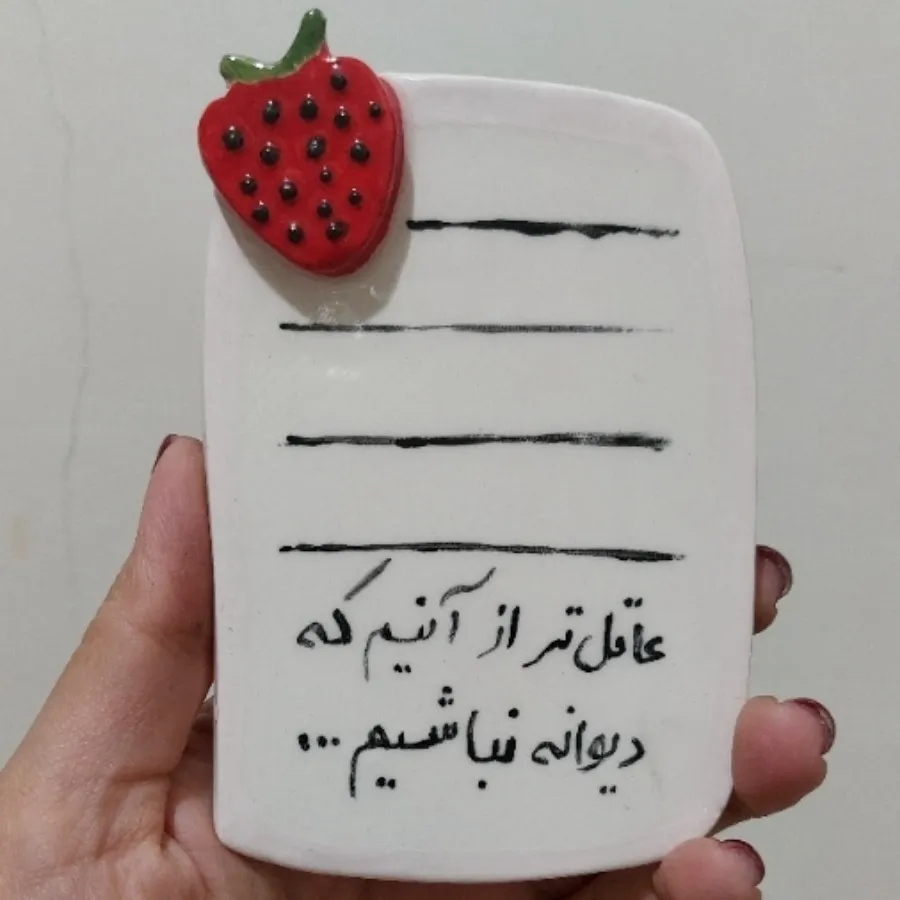 عاقل‌تر از آنیم که
دیوانه نباشیم...